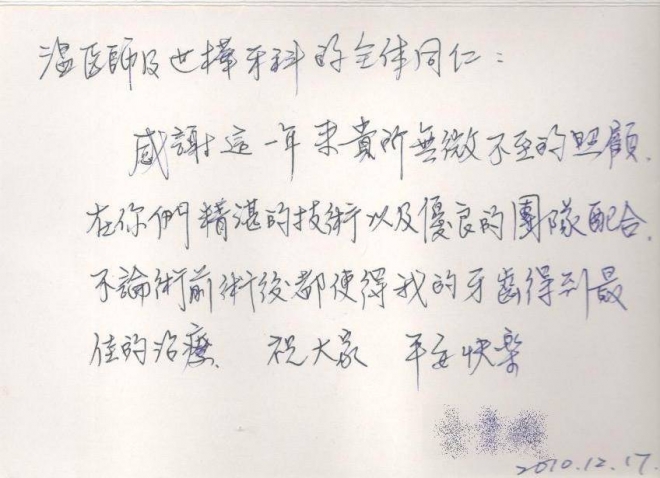 溫医師及世樺牙科的全体同仁：
感謝這一年來貴所無微不至的照顧.
在你們精湛的技術以及優良的團隊配合.
不論術前術後都使得我的牙齒得到最
佳的治療. 祝大家 平安快樂
2010.12.17.